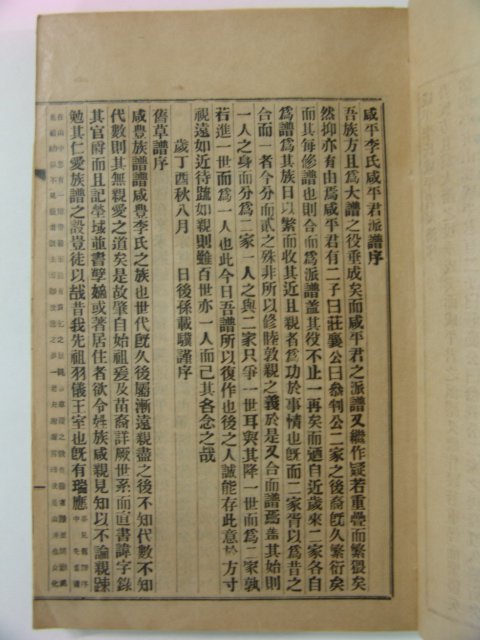 咸平李氏咸平君派譜序
吾族方且爲大譜之役垂成矣而咸平君之派譜又繼作疑若重疊而繁猥矣
然抑亦有由焉咸平君有二子曰莊襄公曰參判公二家之後裔旣久繁衍矣
而其每修譜也則合而爲派譜盖其役不止一再矣而廼自近歲來二家各自
爲譜爲其族日以繁而收其近且親者爲功於事情也旣而二家胥以爲昔之
合而一者今分而貳之殊非所以修睦敦親之義於是又合而譜焉盖其始則
一人之身而分爲二家一人之與二家只爭一世耳與其降一世而爲二家孰
若進一世而爲一人也此今日吾譜所以復作也後之人誠能存此意於方寸
視遠如近待疏如親則雖百世亦一人而已其各念之哉
歲丁酉秋八月 日後孫載驥謹序
舊草譜序
咸豊族譜譜咸豊李氏之族也世代旣久後屬漸遠親盡之後不知代數不知
代數則其無親愛之道矣是故肇自始祖爰及苗裔詳厥世系而直書諱字錄
其官啣而且記塋域並書孽嫡或著居住者欲令姓族咸親見知以不論親踈
勉其仁愛族譜之設豈徒以哉昔我先祖羽儀王室也旣有瑞應